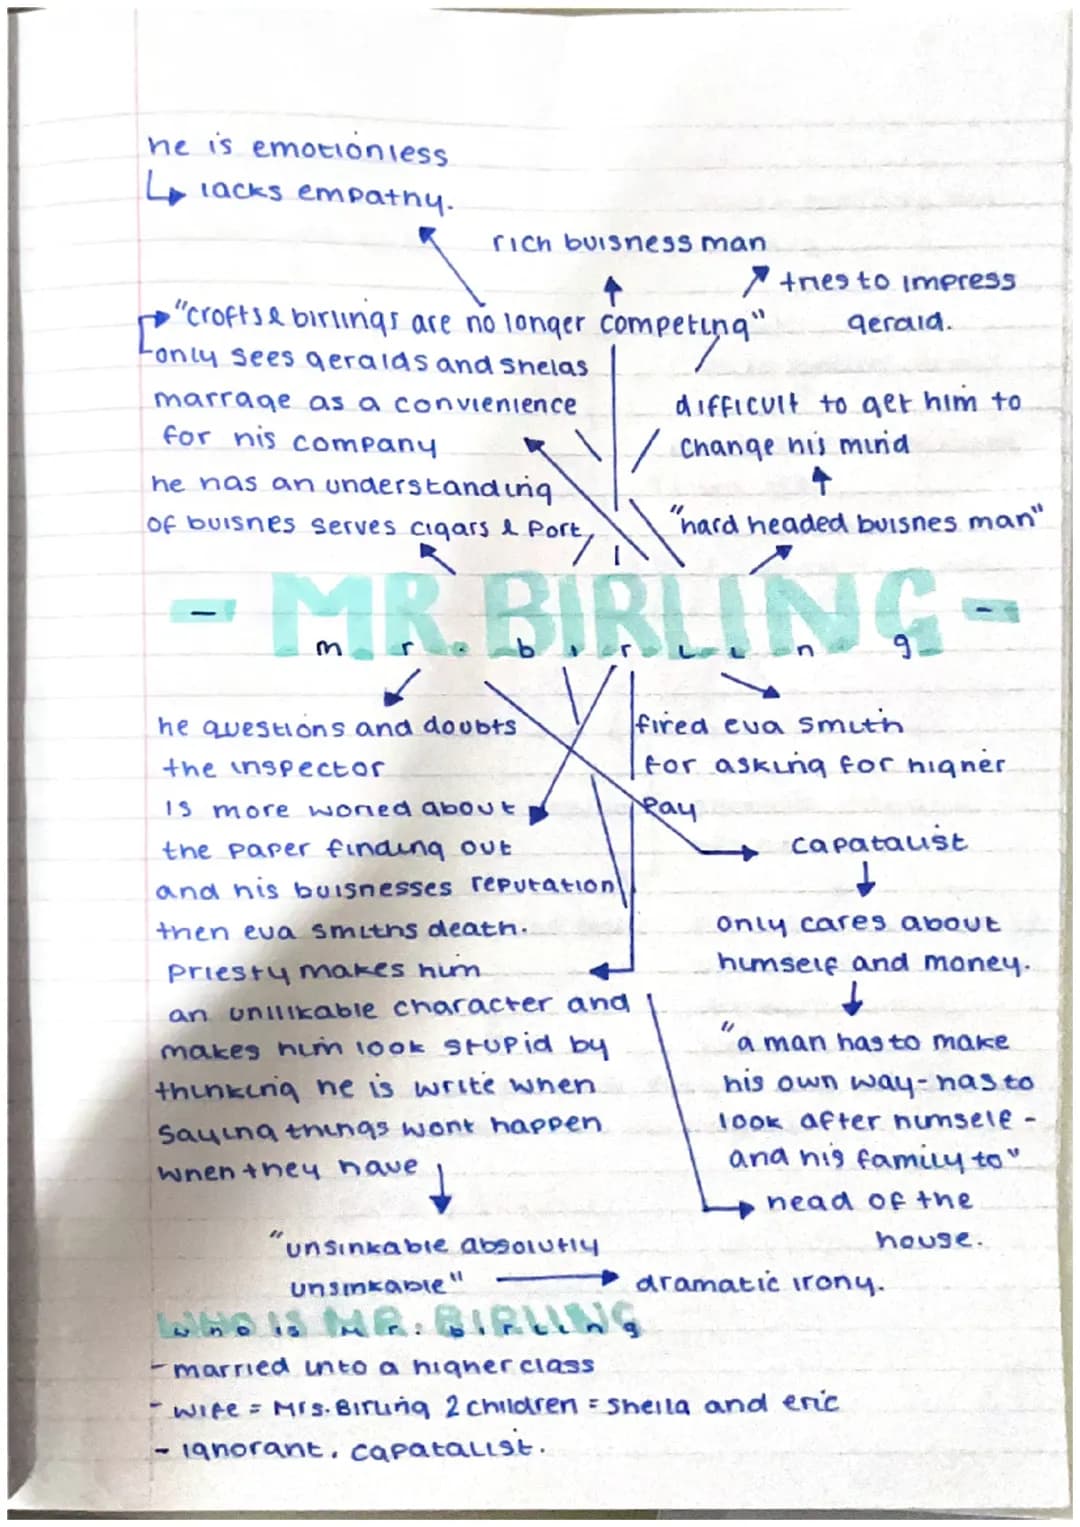 he is emotionless
↳ lacks empathy.
rich buisness man
tries to impress
gerald.
"crofts & birlings are no longer competing"
only sees geralds and shelas
marrage as a convienience
for his company
difficult to get him to
change his mind
he has an understanding
of buisnes serves cigars & Port,
"hard headed buisnes man"
- MR. BIRLING -
m r . b i r l i n g
he questions and doubts
the inspector
fired eva smith
for asking for higher
Pay
is more woried about
the paper finding out
and his buisnesses reputation
then eva smiths death.
capatalist
only cares about
himself and money.
priesty makes him
an unlikable character and
makes him look stupid by
thinking he is write when
saying things wont happen
when they have
"a man has to make
his own way-has to
look after himself -
and his family to"
head of the
house.
"unsinkable absolutly
unsinkable"
dramatic irony.
WHO IS MR. BIRLING
who is mr. birling
- married into a higher class
- wife = Mrs. Birling 2 children = Sheila and eric
- ignorant, capatalist.